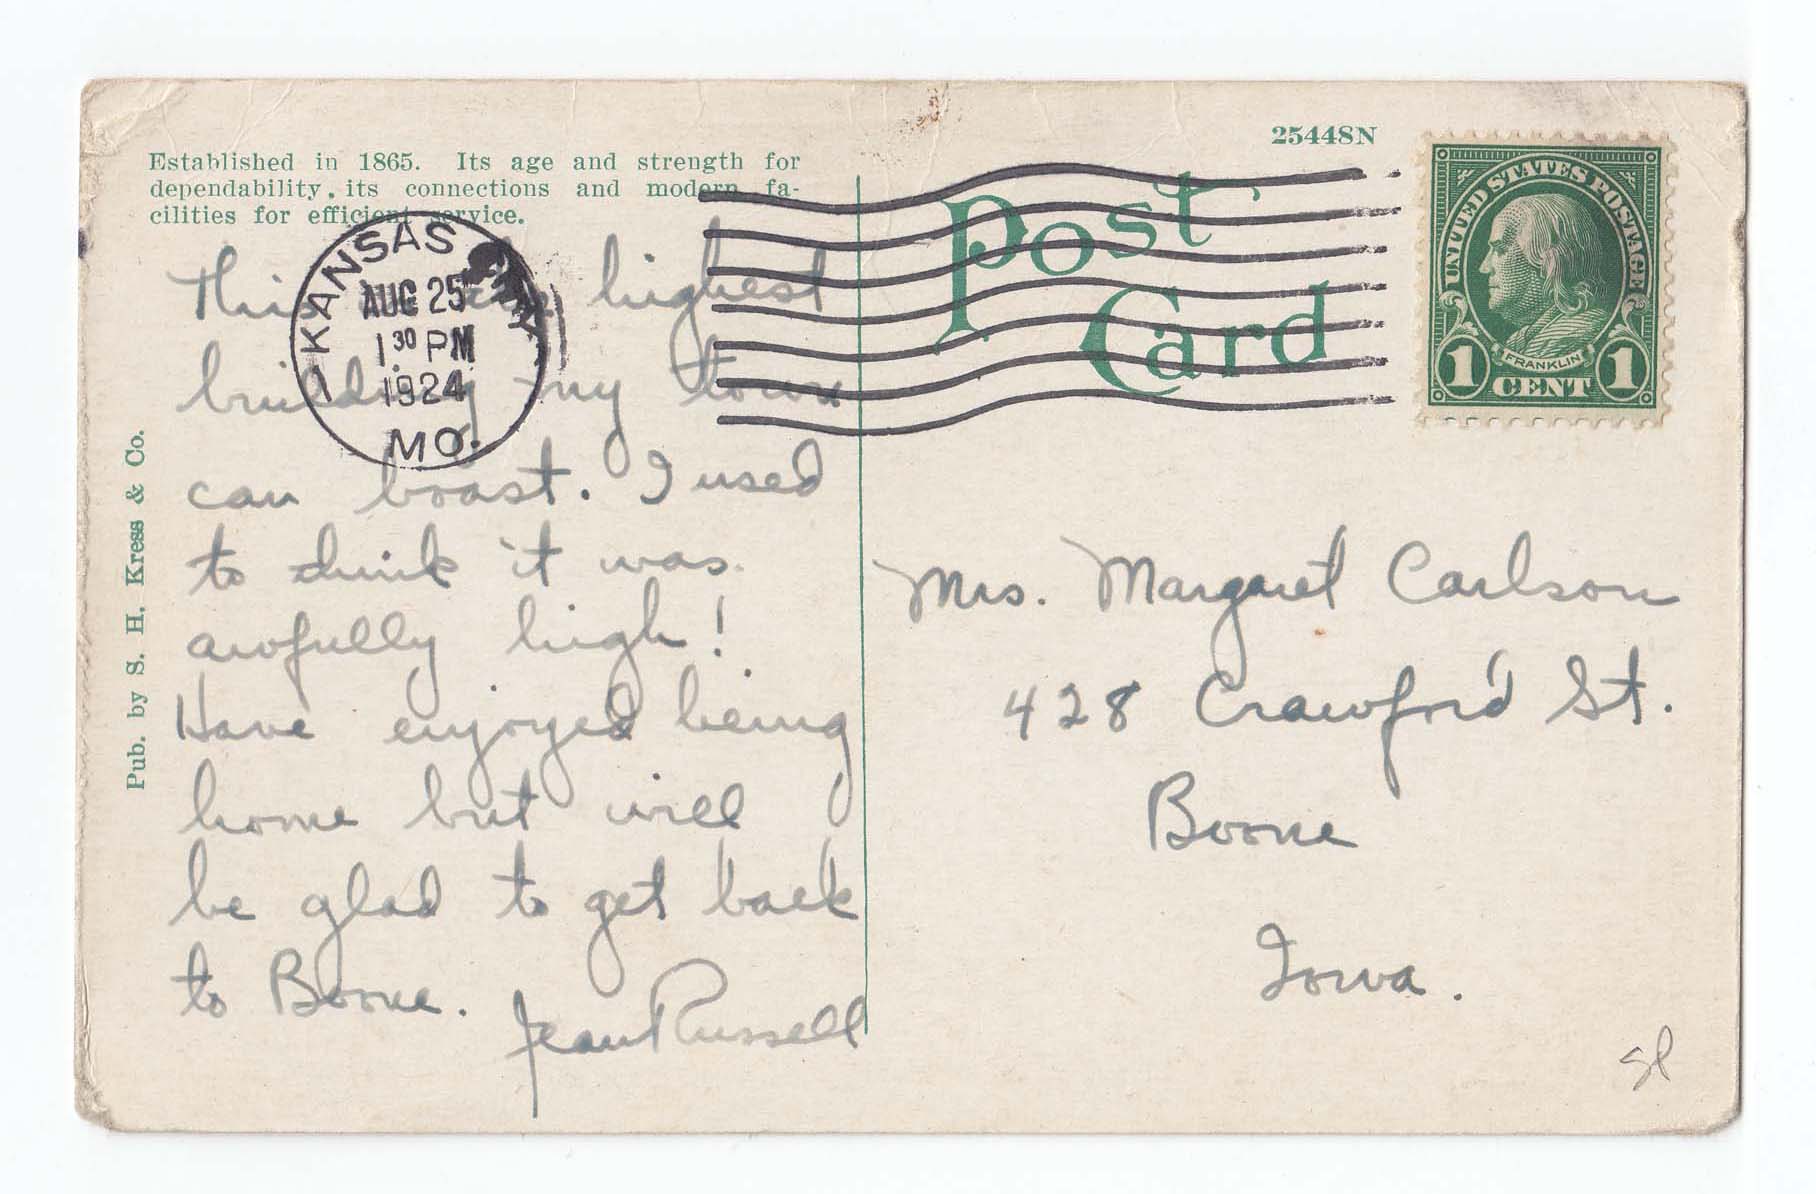 Established in 1865. Its age and strength for
dependability, its connections and modern fa-
cilities for efficient service.
Pub. by S. H. Kress & Co.
KANSAS CITY
AUG 25
1 30 PM
1924
MO.
This is the highest
building my town
can boast. I used
to think it was
awfully high!
Have enjoyed being
home but will
be glad to get back
to Boone.
Jean Russell
Post
Card
25448N
UNITED STATES POSTAGE
FRANKLIN
1 CENT 1
Mrs. Margaret Carlson
428 Crawford St.
Boone
Iowa.